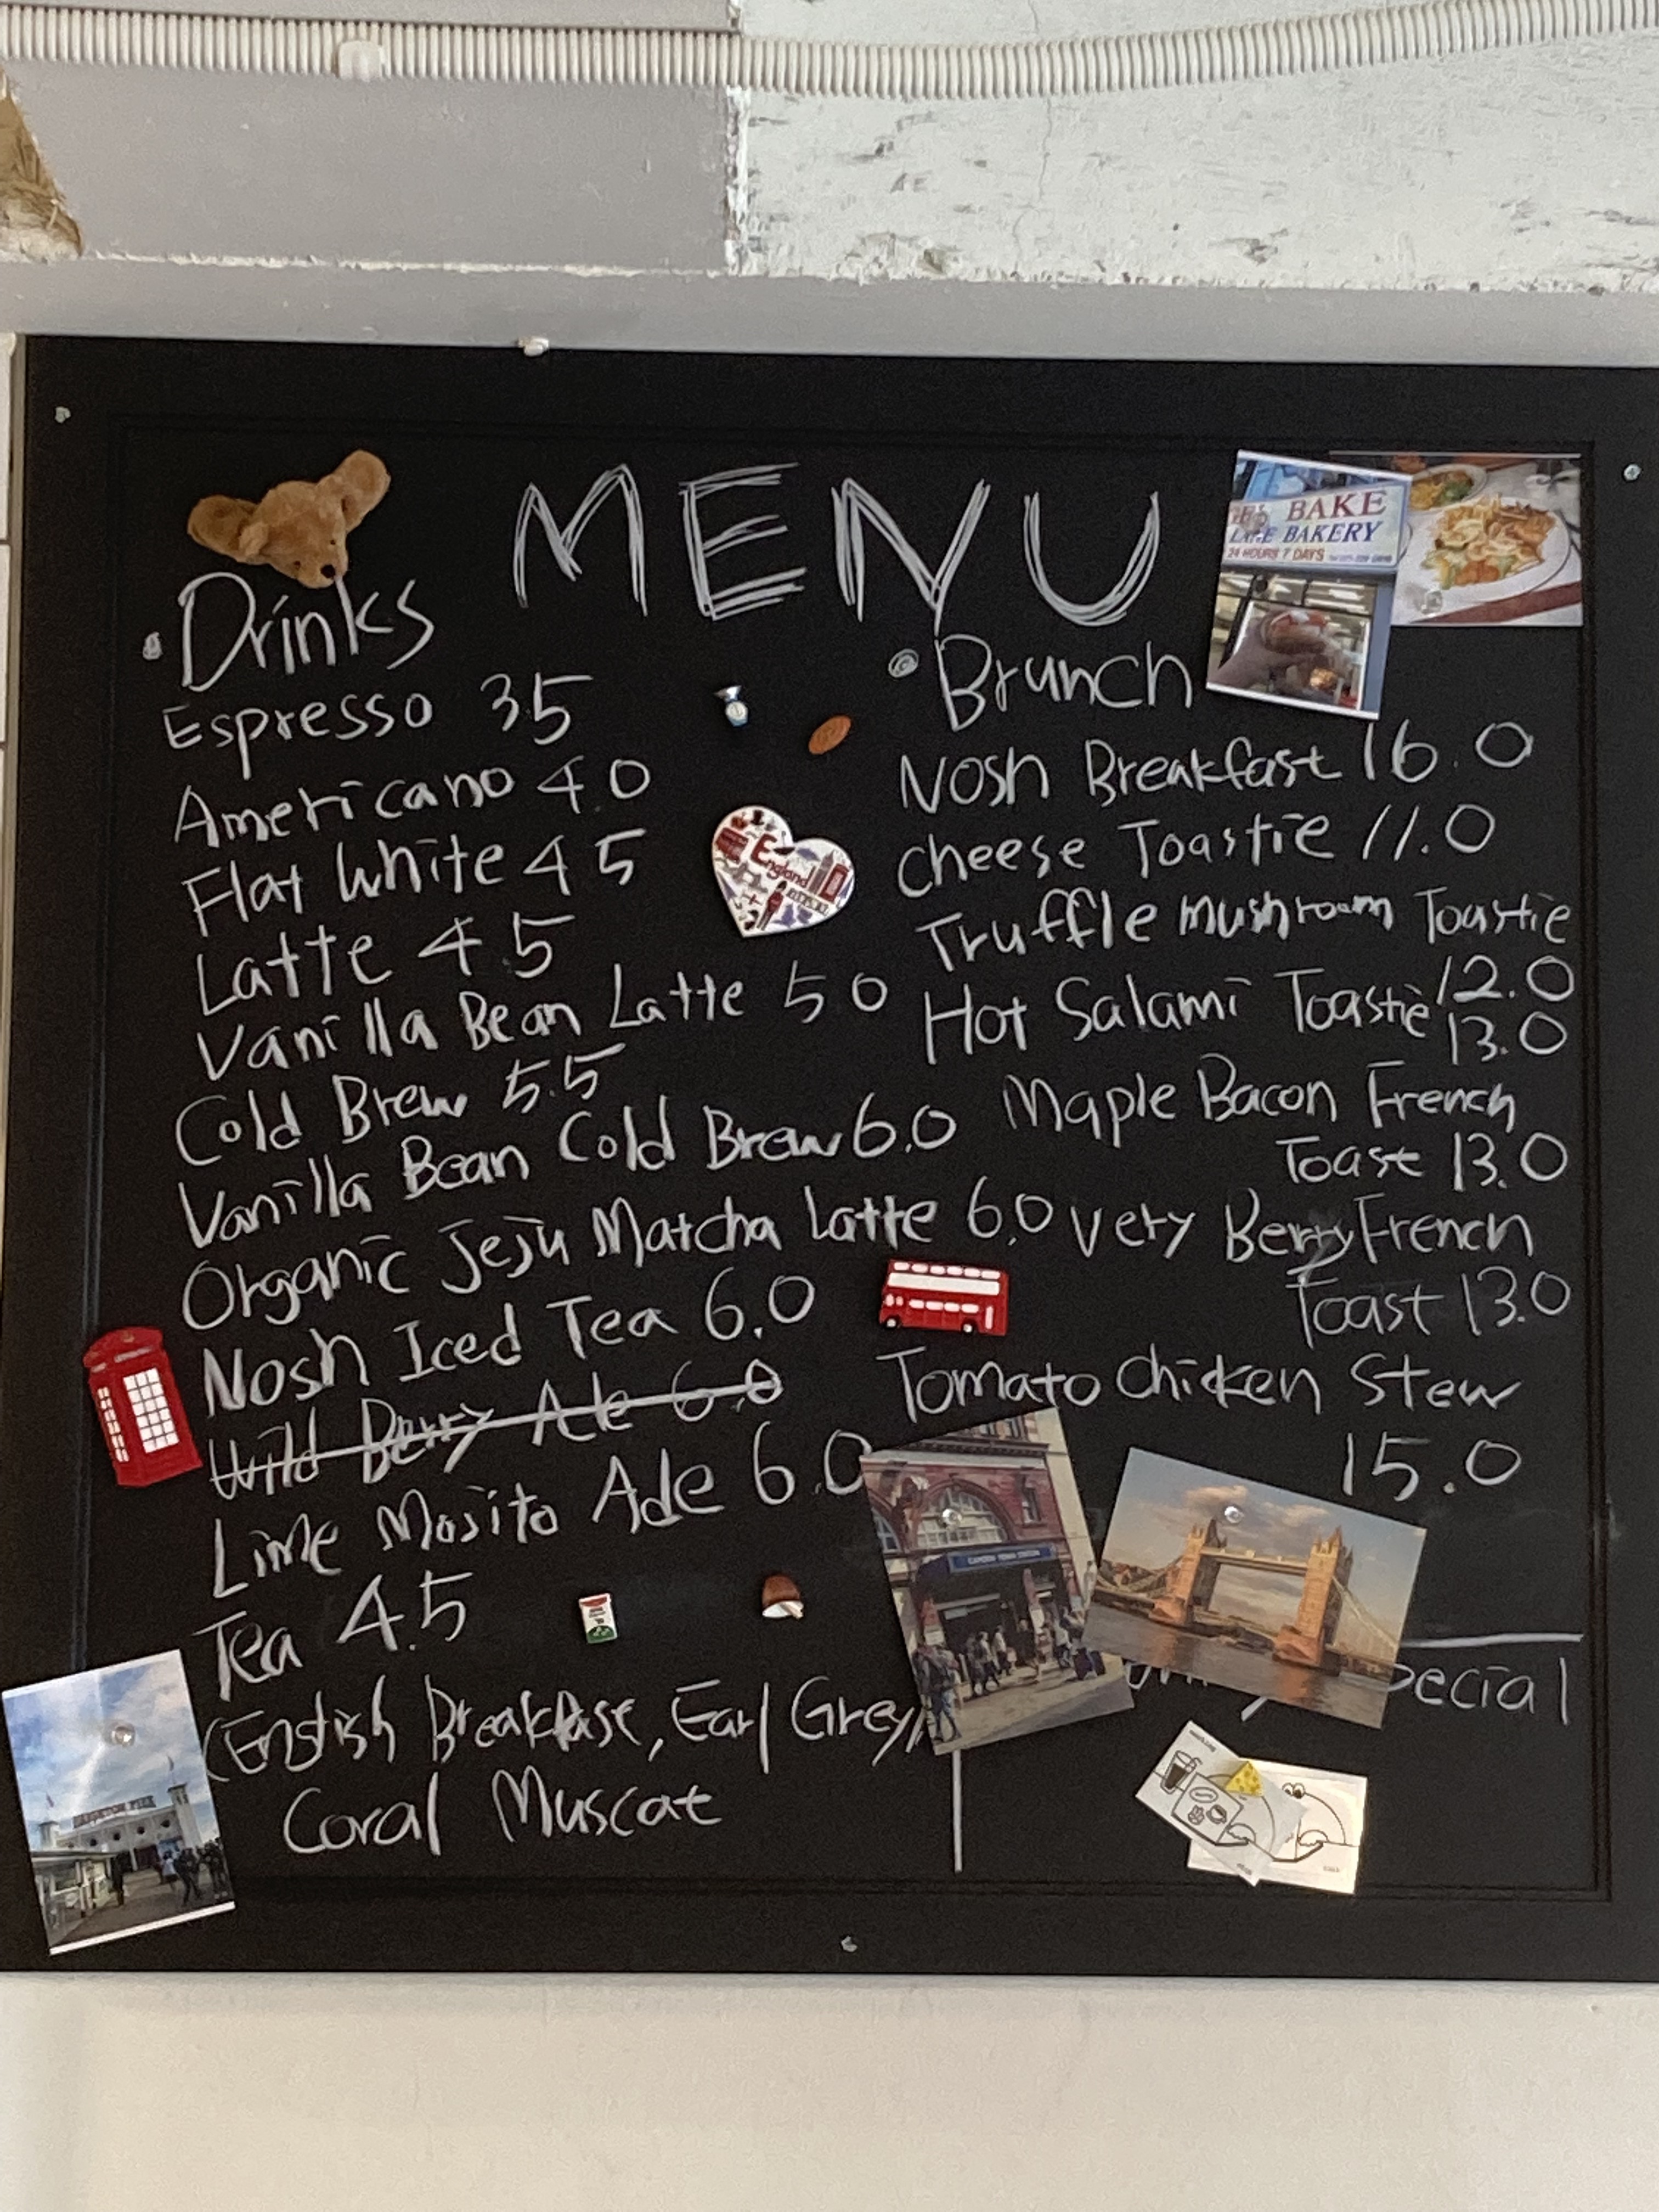 MENU
BAKE
BAKERY
24 HOURS 7 DAYS
England
• Drinks
Espresso 3.5
Americano 4.0
Flat White 4.5
Latte 4.5
Vanilla Bean Latte 5.0
Cold Brew 5.5
Vanilla Bean Cold Brew 6.0
Organic Jeju Matcha Latte 6.0
Nosh Iced Tea 6.0
Wild Berry Ade 6.0
Lime Mojito Ade 6.0
Tea 4.5
(English Breakfast, Earl Grey,
Coral Muscat
• Brunch
Nosh Breakfast 16.0
Cheese Toastie 11.0
Truffle mushroom Toastie
12.0
Hot Salami Toastie 13.0
Maple Bacon French
Toast 13.0
Very Berry French
Toast 13.0
Tomato Chicken Stew
15.0
CAMDEN TOWN STATION
pecial